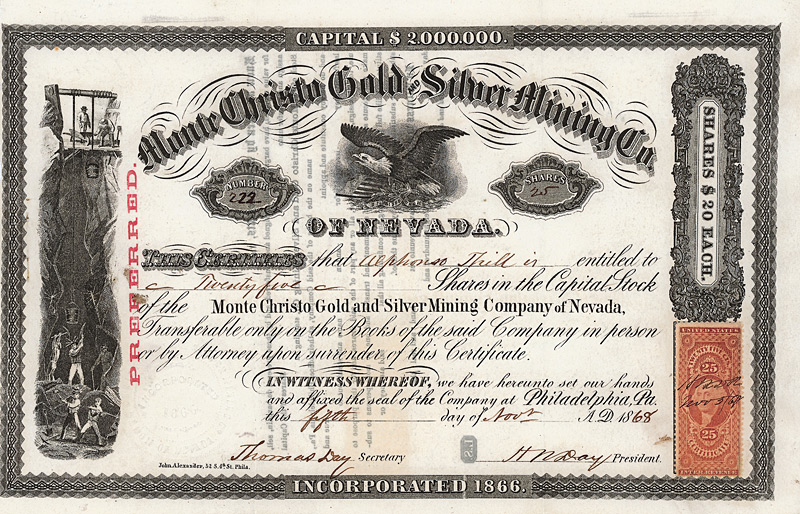 CAPITAL $ 2.000.000.
Monte Christo Gold AND Silver Mining Co
NUMBER
222
SHARES
25
OF NEVADA.
PREFERRED.
SHARES $ 20 EACH.
This Certifies that Alphonso Thill is entitled to
Twenty five Shares in the Capital Stock
of the Monte Christo Gold and Silver Mining Company of Nevada,
Transferable only on the Books of the said Company in person
or by Attorney upon surrender of this Certificate.
IN WITNESS WHEREOF, we have hereunto set our hands
and affixed the seal of the Company at Philadelphia, Pa.
this fifth day of Novr A.D. 1868
Thomas Day Secretary
L.S.
H N Day President.
John Alexander, 52 S. 4th St. Phila.
UNITED STATES
TWENTY FIVE CENTS
25
25
CERTIFICATE
INTER. REVENUE
INCORPORATED 1866.